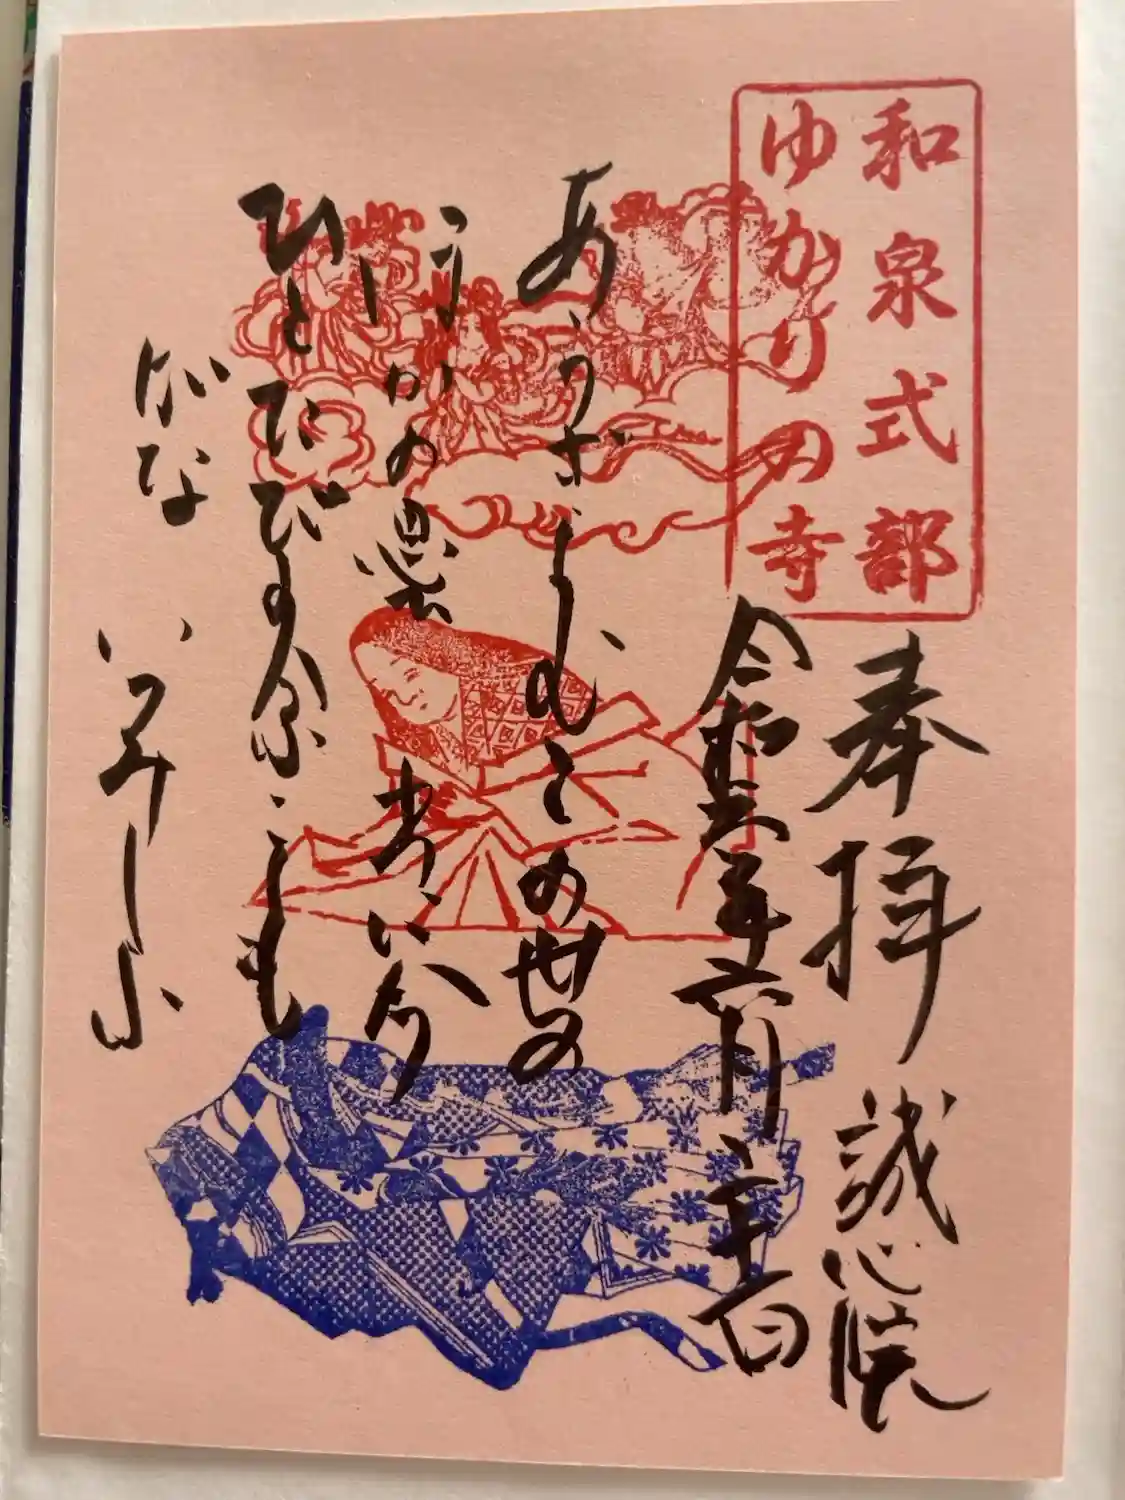 和泉式部
ゆかりの寺
奉拝 誠心院
令和五年六月二十一日
あらざらむこの世の
ほかの思ひ出に今
ひとたびの逢ふことも
がな いづみしきふ